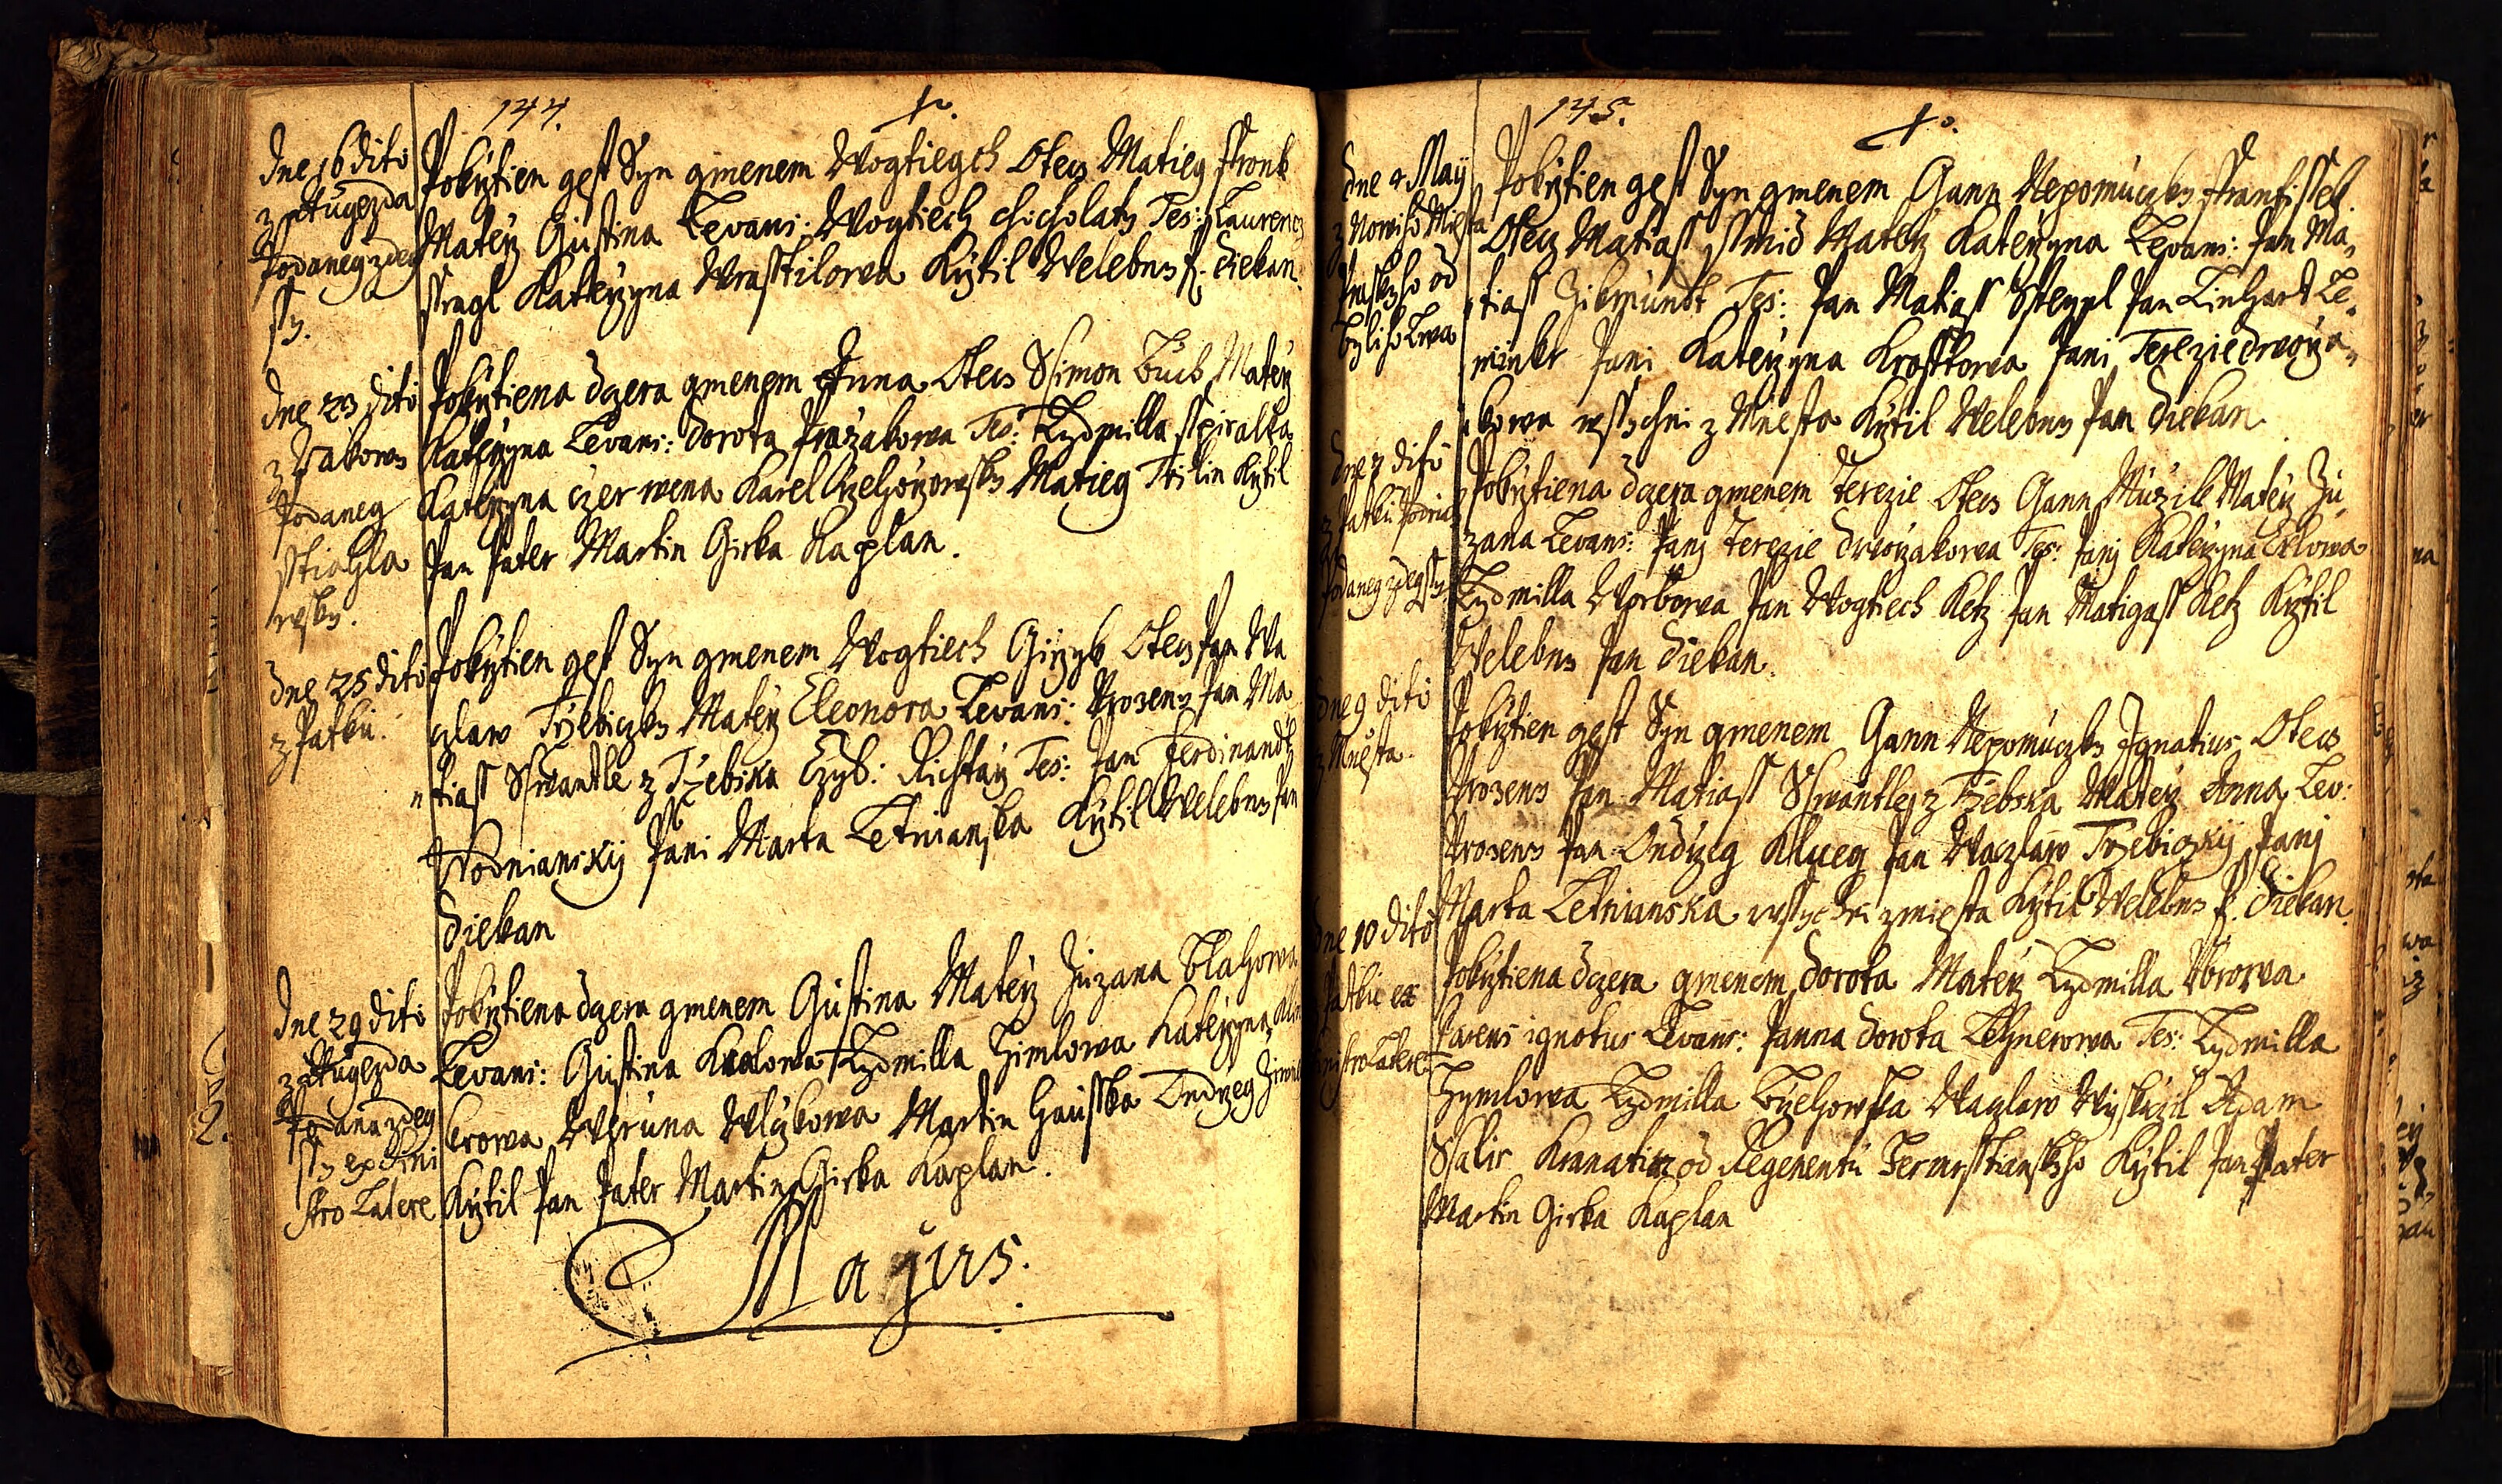 144.
Dne 16 dito
z Augezda
Podaneg zdeg
ssy.
Pokrztien gest Syn gmenem Wogtiegch Otecz Matieg ffronk
Laurencz
Materz Gustina Levans: Wogtiech Chocholaty Tes:
ssragl Katerzyna Wrasstilowa Krztil Welebny P. Diekan.
Dne 23 dito
z Rakows
Podaney
sstiahla
wsky.
Pokrztiena dczera gmenem Anna Otecz Ssimon Buch Materz
Katerzyna Levans: Dorota Prazakowa Tes: Lydmilla
Katerzyna czerwena Karel Matieg Krztil
Pan Pater Martin Girka Kaplan.
Dne 25 dito
z Patku.
Pokrztien gest Syn gmenem Wogtiech Girzyk Otecz Pan Wa
czlaw Trzebiczky Materz Eleonora Levans: Urozeny Pan Ma
„tiass Sswantle z Trzebska Czys: Richtarz Tes: Pan Ferdinandt
Wodnianskij Pani Marta Letnianska Krztil Welebny Pan
Diekan
Dne 29 dito
z Augezda
Podana zdeg
ssy ex Sini
stro Latere
Pokrztiena dczera gmenem Gustina Materz Zuzana Blahowa
Levans: Gustina Kralowa Lydmilla Zimlowa Katerzyna
krowa Weruna Wlczkowa Martin Hausska Ondrzeg
Krztil Pan Pater Martin Girka Kaplan.
Magius.
145.
Dne 4 May
z Noweho Miesta
Prazskyho od
bzliho Lwa
Pokrztien gest Syn gmenem Gann Nepomuczky Frantissek
Otecz Matiass Ssmid Materz Katerzyna Levans: Pan Ma„
„tiass Zikmundt Tes: Pan Matiass Pan Linhart Le„
minkr Pani Katerzyna Krosskowa Pani Terezie Dworza„
„kowa wssychni z Miesta Krztil Welebny Pan Diekan
Dne 7 dito
z Patku
Podaneg zdegssy
Pokrztiena dczera gmenem Terezie Otecz Gann Muzik Materz Zu„
zana Levans: Panj Terezie Dworzakowa Tes: Panj Katerzyna Erlowa
Lydmilla Worbowa Pan Wogtiech Ketz Pan Matigass Ketz Krztil
Welebny Pan Diekan.
Dne 9 dito
z Miesta.
Pokrztien gest Syn gmenem Gann Nepomuczky Ignatius Otecz
Urozeny Pan Matiass Sswantle z Trzebska Materz Anna Lev:
Urozeny Pan Ondrzeg Pan Waczlaw Trzebiczkij Panj
Marta Letnianska wssychni z miesta Krztil Welebny P. Diekan.
Dne 10 dito
Patku ex
sinistro Latere
Pokrztiena dczera gmenem Dorota Materz Lydmilla
Parens ignotus Levans: Panna Dorota Lehnerowa Tes: Lydmilla
Zymlowa Lydmilla Waczlaw Wyskrzil Adam
Ssalir od Regementu Krztil Pan Pater
Martin Girka Kaplan